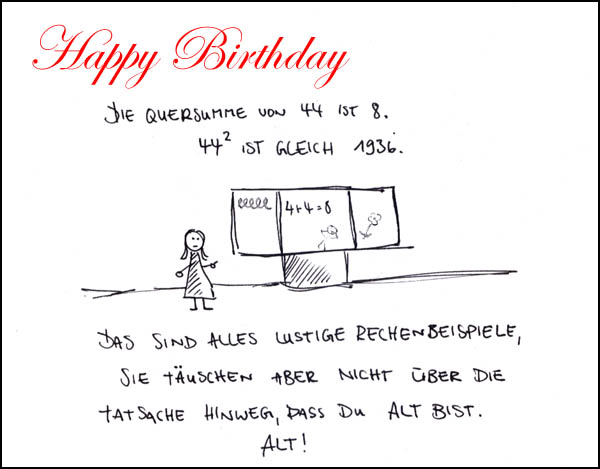 Happy Birthday
DIE QUERSUMME VON 44 IST 8.
44² IST GLEICH 1936.
eeeee
4+4=8
DAS SIND ALLES LUSTIGE RECHENBEISPIELE,
SIE TÄUSCHEN ABER NICHT ÜBER DIE
TATSACHE HINWEG, DASS DU ALT BIST.
ALT!